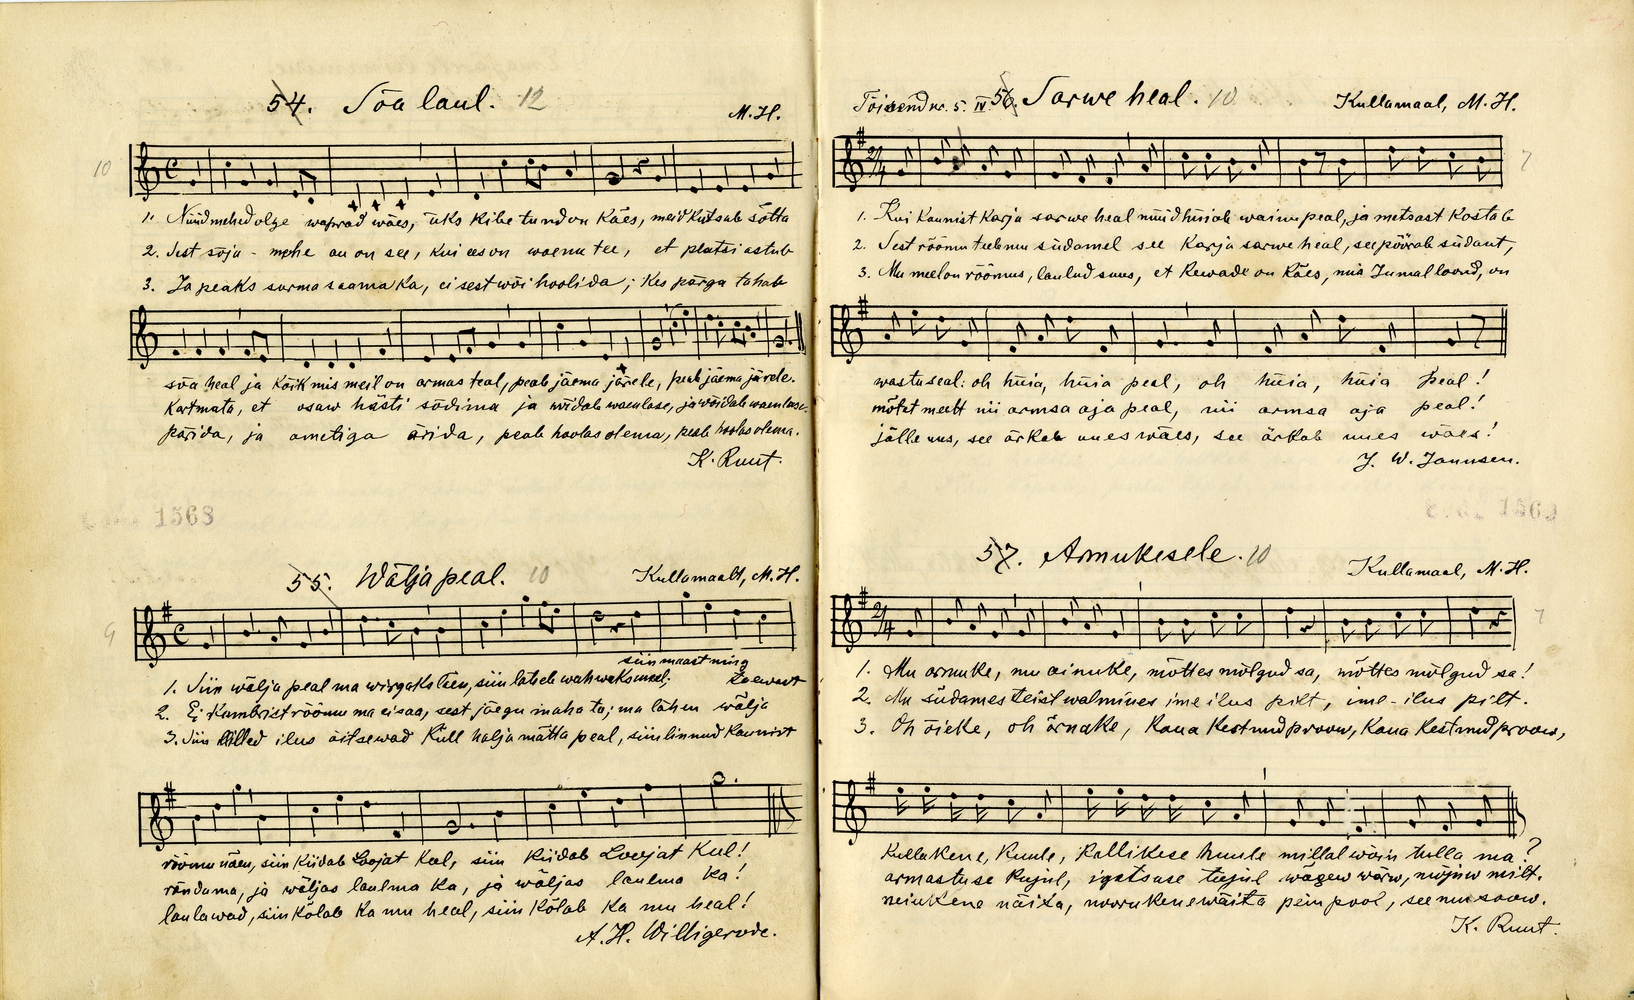 54. Sõa laul. 12
M. H.
10
1. Nüüd mehed olge waprad wäes, üks kibe tund on käes, meid kutsub sõtta
2. Sest sõja-mehe au on see, kui ees on waenu tee, et platsi astub
3. Ja peaks surma saama ka, ei sest wõi hoolida; kes pärga tahab
sõa heal ja kõik mis meil on armas teal, peab jääma järele, peab jääma järele.
kartmata, et osaw hästi sõdima ja wõidab waenlase, ja wõidab waenlase.
pärida, ja ametiga ärida, peab hoolas olema, peab hoolas olema.
K. Ruut.
1568
55. Wälja peal. 10
Kullamaalt, M. H.
9
siin maast ning
1. Siin wälja peal ma wirgaks läen, siin läheb wahwaks meel; taewast
2. Ei kambrist rõõmu ma ei saa, sest jäegu maha ta; ma lähen wälja
3. Siin lilled ilus õitsewad küll halja mätta peal, siin linnud kaunist
rõõmu näen, siin kiidab Loojat keel, siin kiidab Loojat keel!
rändama, ja wäljas laulma ka, ja wäljas laulma ka!
laulawad, siin kõlab ka mu heal, siin kõlab ka mu heal!
A. H. Willigerode.
Tõisend nr. 5. IV. 56. Sarwe heal. 10
Kullamaal, M. H.
7
1. Kui kaunist karja sarwe heal nüüd hüiab wainu peal, ja metsast kostab
2. Sest rõõmu tuleb mu südamel see karja sarwe heal, see pöörab südant,
3. Mu meel on rõõmus, laulud suus, et kewade on käes, mis Jumal loond, on
wastu seal: oh hüia, hüia peal, oh hüia, hüia peal!
mõtet meelt nii armsa aja peal, nii armsa aja peal!
jälle uus, see ärkab uues wäes, see ärkab uues wäes!
J. W. Jannsen.
1568
57. Armukesele. 10
Kullamaal, M. H.
7
1. Mu armuke, mu ainuke, mõttes mõlgud sa, mõttes mõlgud sa!
2. Mu südames teist walmines ime ilus pilt, ime-ilus pilt.
3. Oh õieke, oh õrnake, kaua kestnud proow, kaua kestnud proow,
kullakene, kuule, kallikese huule millal wõin tulla ma?
armastuse kujul, igatsuse tujul wägew wärw, mõjuw milt.
neiukene näita, noorukene wäita pein pool, see mu soow.
K. Ruut.